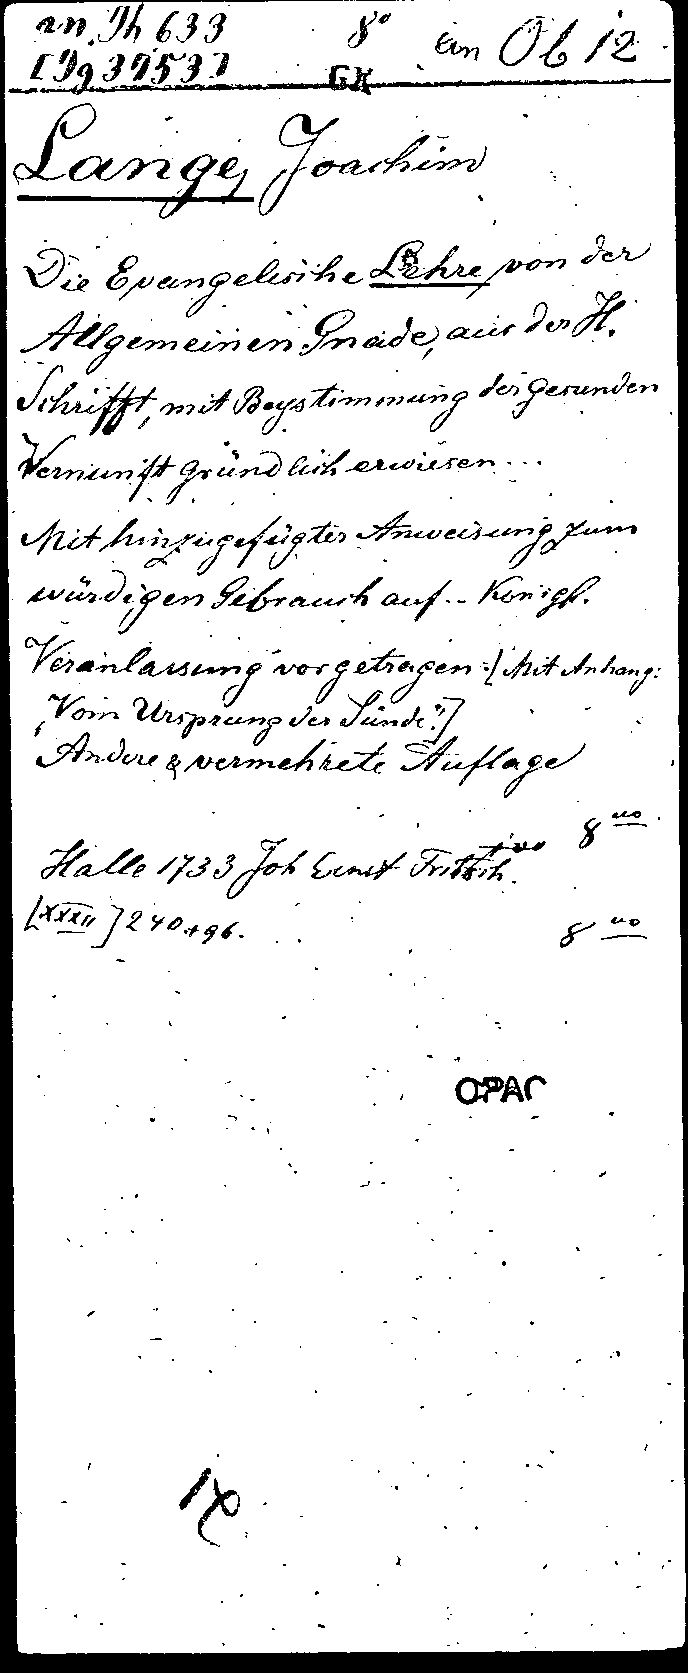 an Th 633 8° an Ob 12
[Dg 37537] GK
Lange, Joachim
Die Evangelische Lehre von der
Allgemeinen Gnade, aus der H.
Schrifft, mit Beystimmung der gesunden
Vernunft gründlich erwiesen...
Mit hinzugefügter Anweisung zum
würdigen Gebrauch auf.. Königl.
Veranlassung vorgetragen. [Mit Anhang:
"Vom Ursprung der Sünde".]
Andere & vermehrete Auflage
8 uo
Halle 1733 Joh Ernst Fritsch.
[XXXII] 240 + 96. 8 uo
OPAC